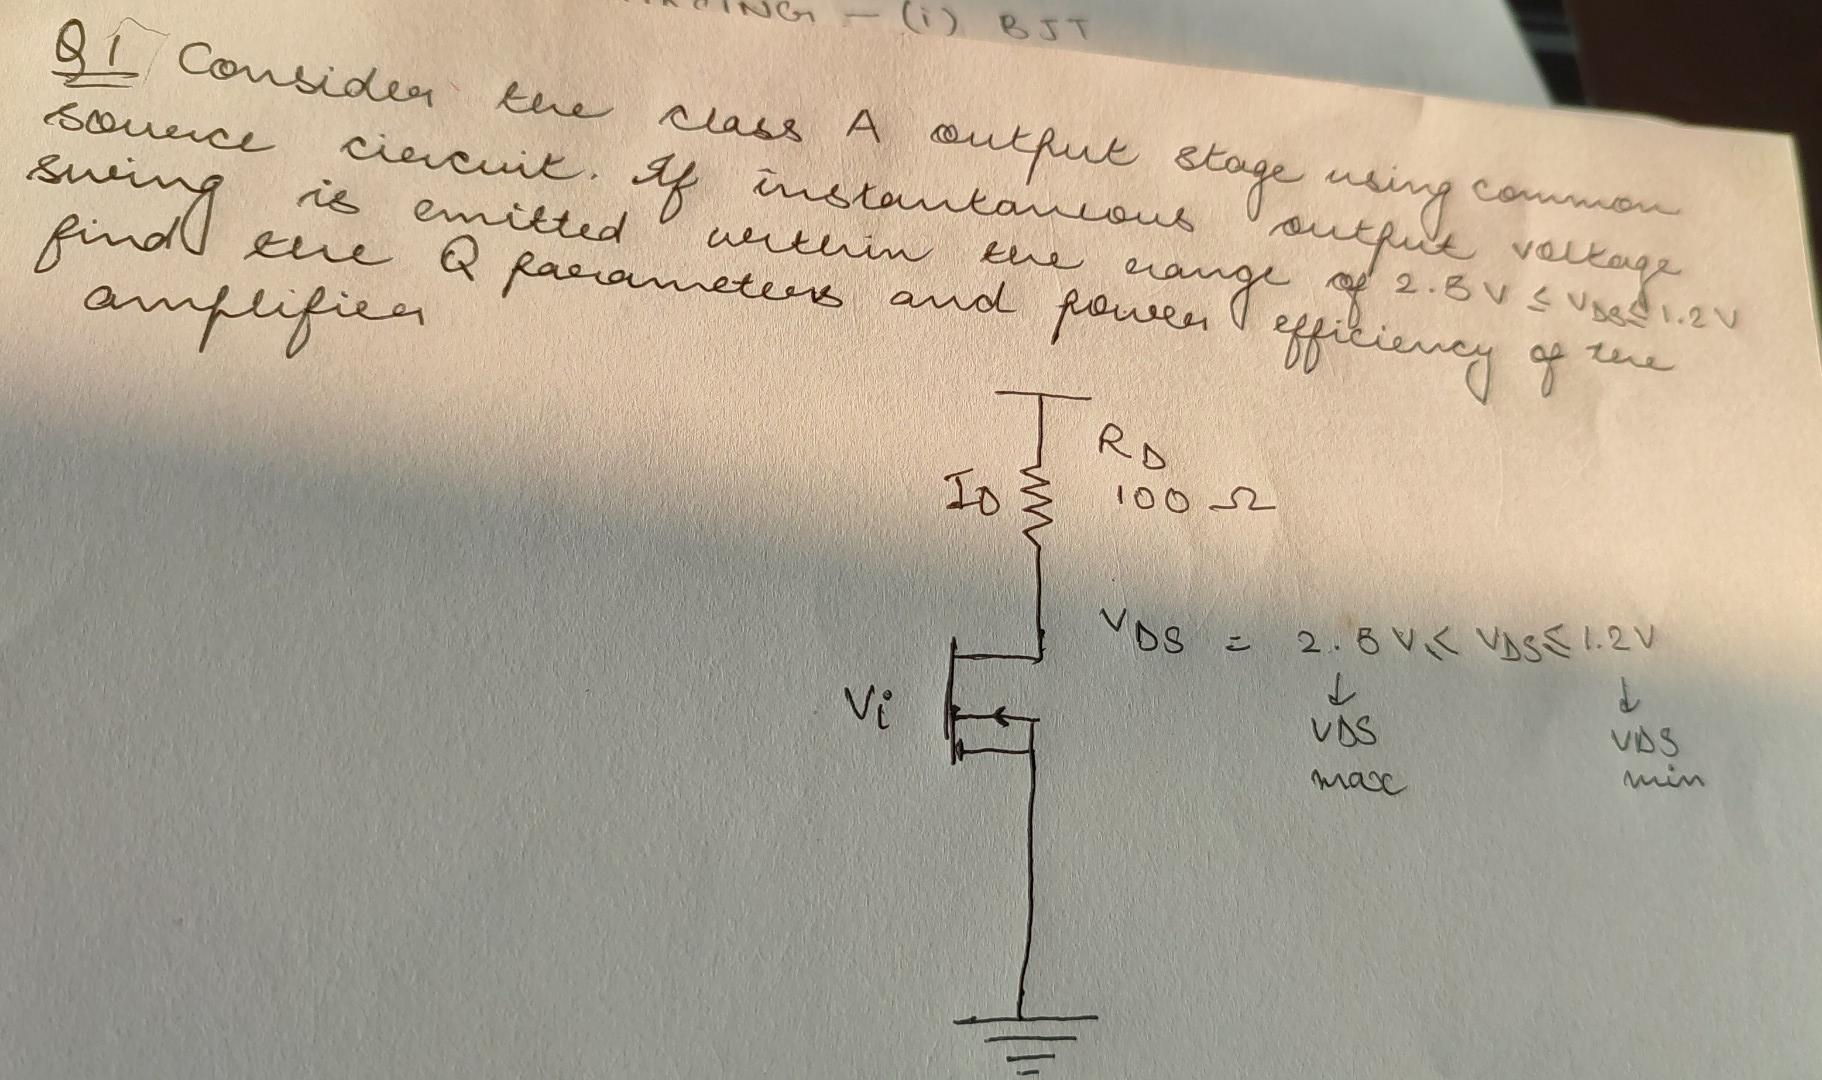 – (i) BJT
Q1 Consider the class A output stage using common
source circuit. If instantaneous output voltage
swing is emitted within the range of 2.8V ≤ VDS ≤ 1.2V
find the Q parameters and power efficiency of the
amplifier
RD
ID 100 Ω
VDS = 2.8V ≤ VDS ≤ 1.2V
↓ ↓
Vi VDS VDS
max min